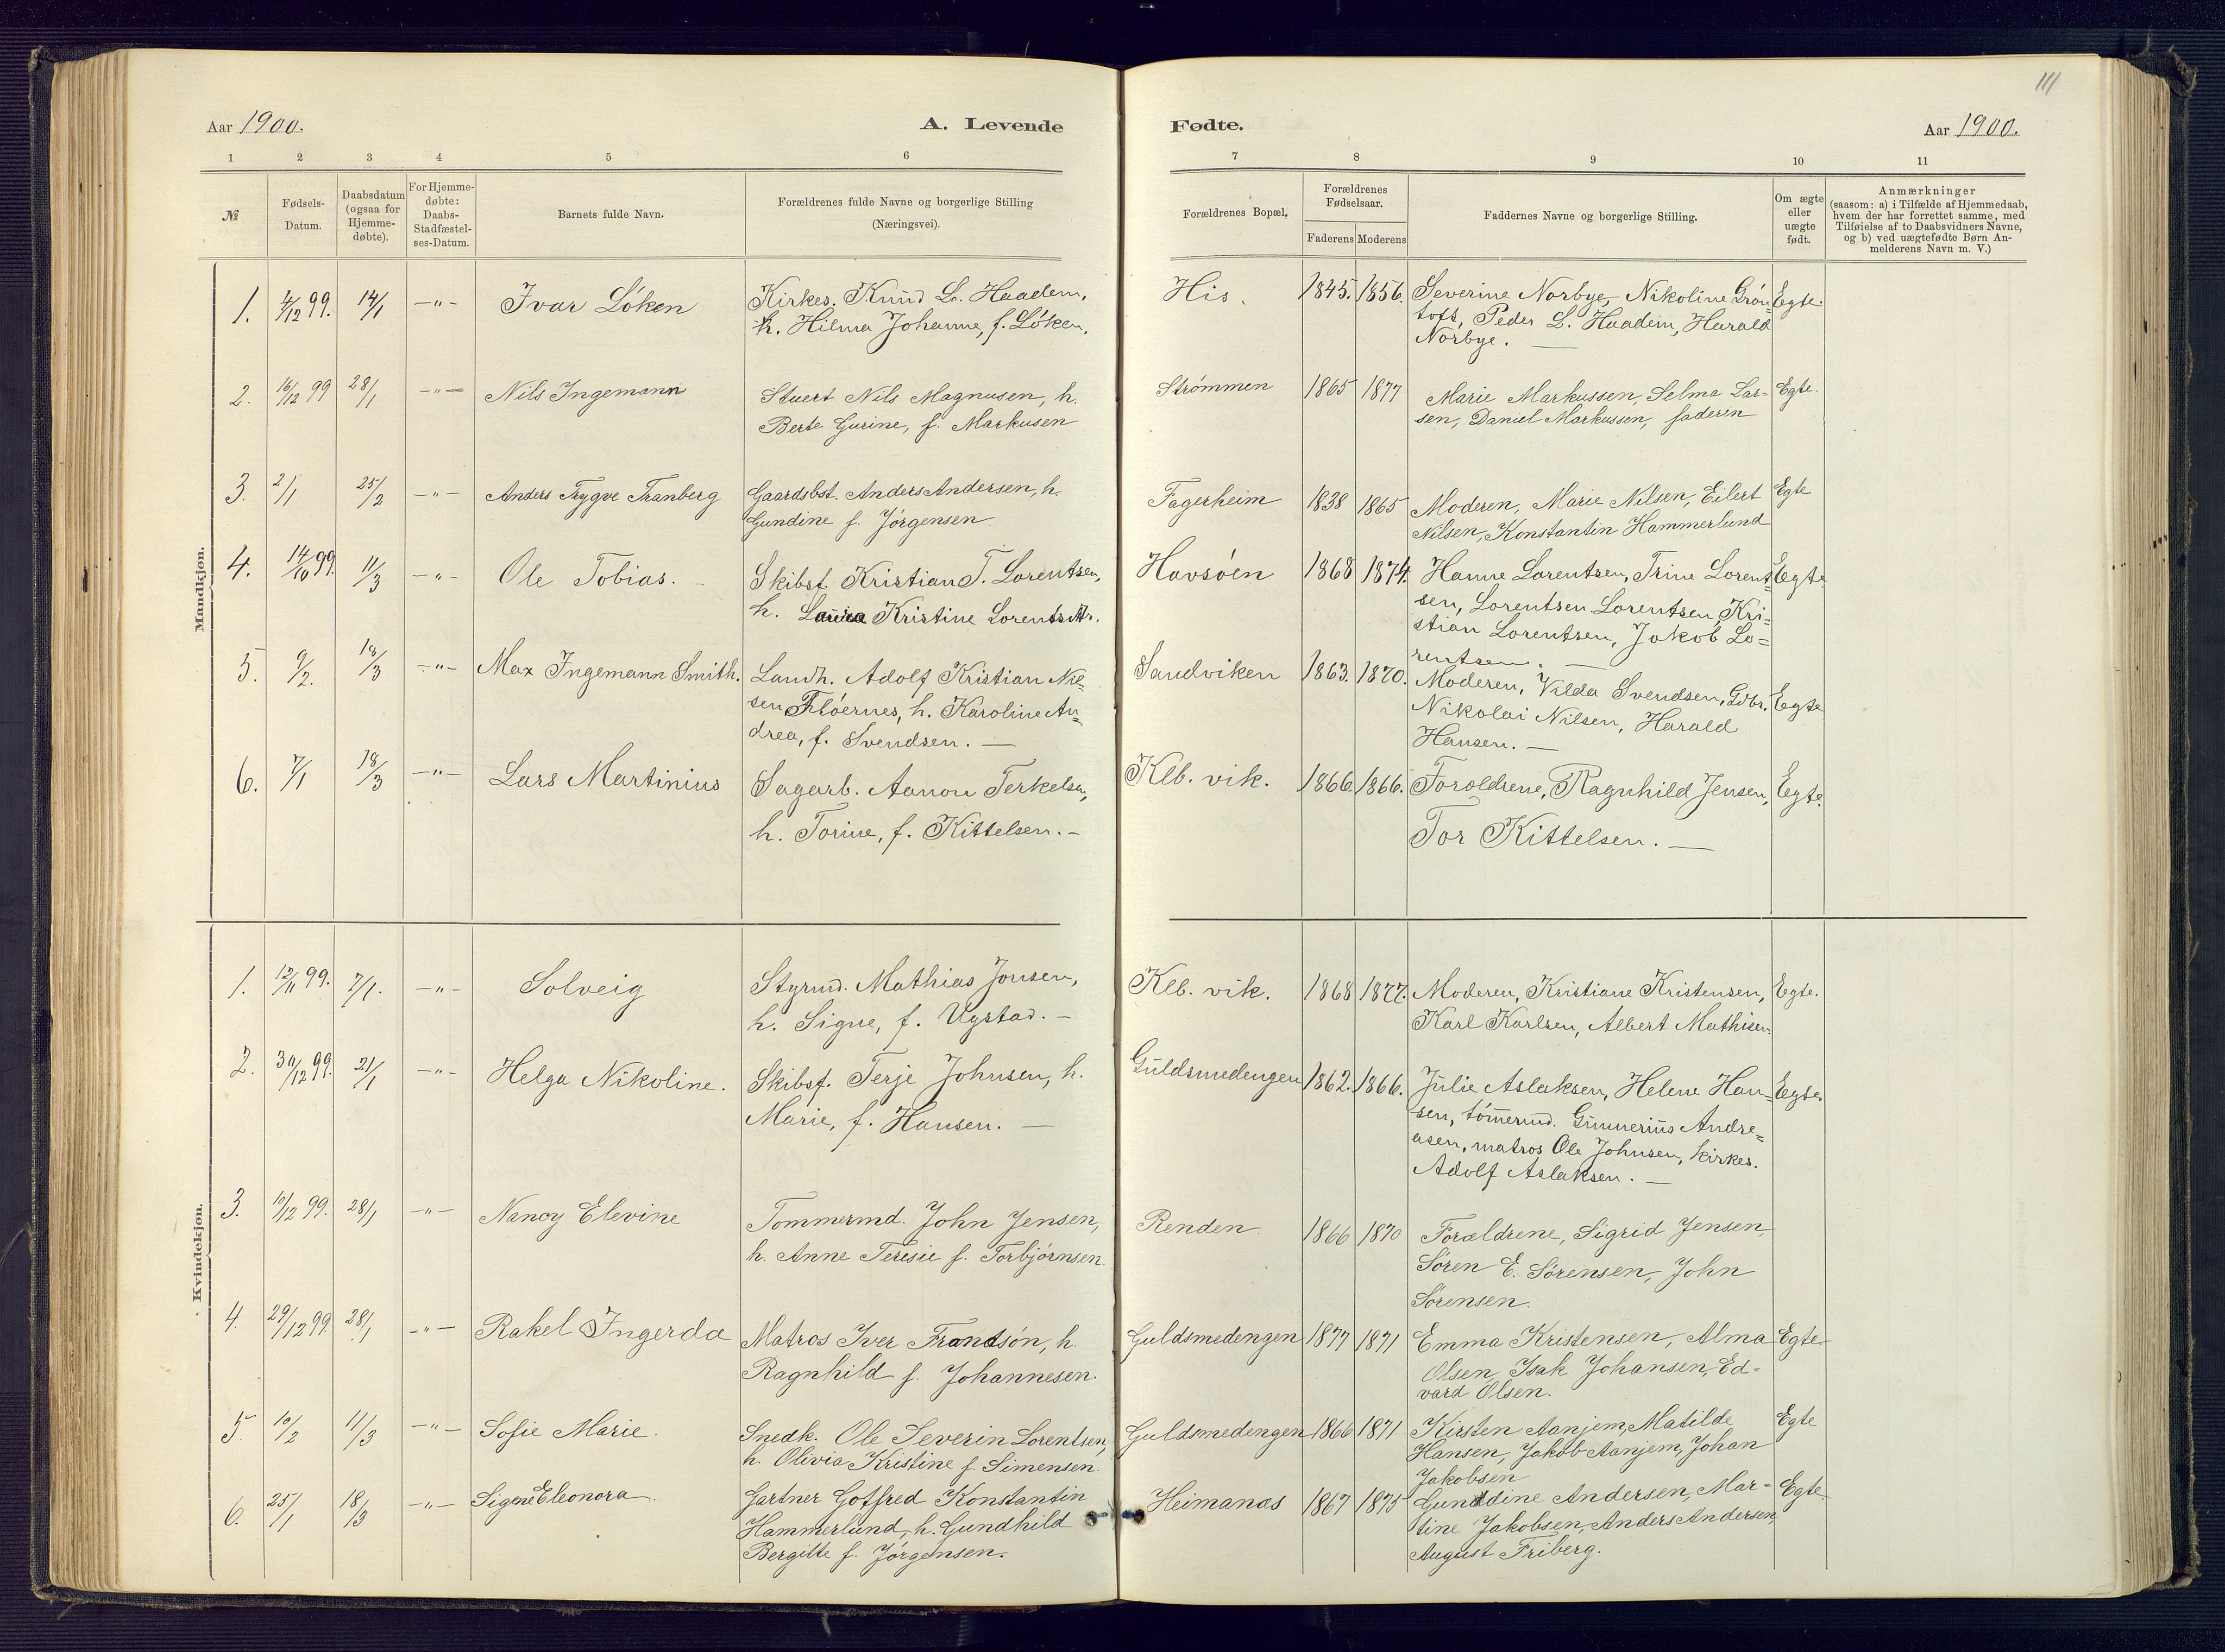 111
Aar 1900. A. Levende Fødte. Aar 1900.
1 2 3 4 5 6 7 8 9 10 11
№
Fødsels-
Datum.
Daabsdatum
(ogsaa for
Hjemme-
døbte).
For Hjemme-
døbte:
Daabs-
Stadfæstel-
ses-Datum.
Barnets fulde Navn.
Forældrenes fulde Navne og borgerlige Stilling
(Næringsvei).
Forældrenes Bopæl,
Forældrenes
Fødselsaar.
Faderens Moderens
Faddernes Navne og borgerlige Stilling.
Om ægte
eller
uægte
født.
Anmærkninger
(saasom: a) i Tilfælde af Hjemmedaab,
hvem der har forrettet samme, med
Tilføielse af to Daabsvidners Navne,
og b) ved uægtefødte Børn An-
melderens Navn m. V.)
Mandkjøn.
1. 4/12 99. 14/1 —"— Ivar Löken
Kirkes. Knud L. Haadem,
h. Hilma Johanne, f. Löken.
His. 1845. 1856.
Severine Norbye, Nikoline Grön-
toft, Peder L. Haadem, Harald
Norbye. —
Egte.
2. 16/12 99 28/1 —"— Nils Ingemann
Stuert Nils Magnusen, h.
Berte Gurine, f. Markusen
Strömmen 1865 1877
Marie Markussen, Selma Lar-
sen, Daniel Markussen, faderen
Egte.
3. 2/1 25/2 —"— Anders Trygve Tranberg
Gaardsbst. Anders Andersen, h.
Gundine f. Jörgensen
Fagerheim 1838 1865
Moderen, Marie Nilsen, Eilert
Nilsen, Konstantin Hammerlund
Egte
4. 14/10 99. 11/3 —"— Ole Tobias. –
Skibsf. Kristian T. Lorentsen,
h. Laura Kristine Lorentsdtr.
Havsöen 1868 1874.
Hanne Lorentsen, Trine Lorent-
sen, Lorentsen Lorentsen, Kri=
stian Lorentsen, Jakob Lo=
rentsen. —
Egte.
5. 9/2. 18/3 —"— Max Ingemann Smith.
Landh. Adolf Kristian Niel=
sen Flöernes, h. Karoline An=
drea, f. Svendsen. —
Sandviken 1863. 1870.
Moderen, Vilda Svendsen, Gdbr.
Nikolai Nilsen, Harald
Hansen. —
Egte
6. 7/1 18/3 —"— Lars Martinius
Sagarb. Aanon Terkelsen,
h. Torine, f. Kittelsen. –
Klb. vik. 1866. 1866.
Foroldrene, Ragnhild Jensen,
Tor Kittelsen. —
Egte.
Kvindekjøn.
1. 12/11 99. 7/1. —"— Solveig
Styrmd. Mathias Jonsen,
h. Signe, f. Ugstad. –
Klb. vik. 1868 1877.
Moderen, Kristiane Kristensen,
Karl Karlsen, Albert Mathisen
Egte.
2. 30/12 99. 21/1 —"— Helga Nikoline.
Skibsf. Terje Johnsen, h.
Marie, f. Hansen. —
Guldsmedengen 1862. 1866.
Julie Aslaksen, Helene Han=
sen, tömermd. Gunnerius Andre=
asen, matros Ole Johnsen, kirkes.
Adolf Aslaksen. —
Egte.
3. 10/12 99. 28/1 —"— Nancy Elevine
Tommermd. John Jensen,
h. Anne Teresie f. Torbjörnsen.
Renden 1866 1870
Forældrene, Sigrid Jensen,
Sören E. Sörensen, John
Sörensen.
4. 29/12 99. 28/1 —"— Rakel Ingerda
Matros Iver Frantsön, h.
Ragnhild f. Johannesen.
Guldsmedengen 1877 1871
Emma Kristensen, Alma
Olsen, Isak Johansen, Ed-
vard Olsen.
Egte
5. 10/2 11/3 —"— Sofie Marie.
Snedk. Ole Severin Lorentsen,
h. Olivia Kristine f. Simensen.
Guldsmedengen 1866 1871
Kirsten Aanjem, Matilde
Hansen, Jakob Aanjem, Johan
Jakobsen
Egte
6. 25/1 18/3 —"— Signe Eleonora.
Gartner Gotfred Konstantin
Hammerlund, h. Gundhild
Bergitte f. Jörgensen.
Heimanas 1867 1875
Gundine Andersen, Mar-
tine Jakobsen, Anders Andersen,
August Friberg.
Egte.